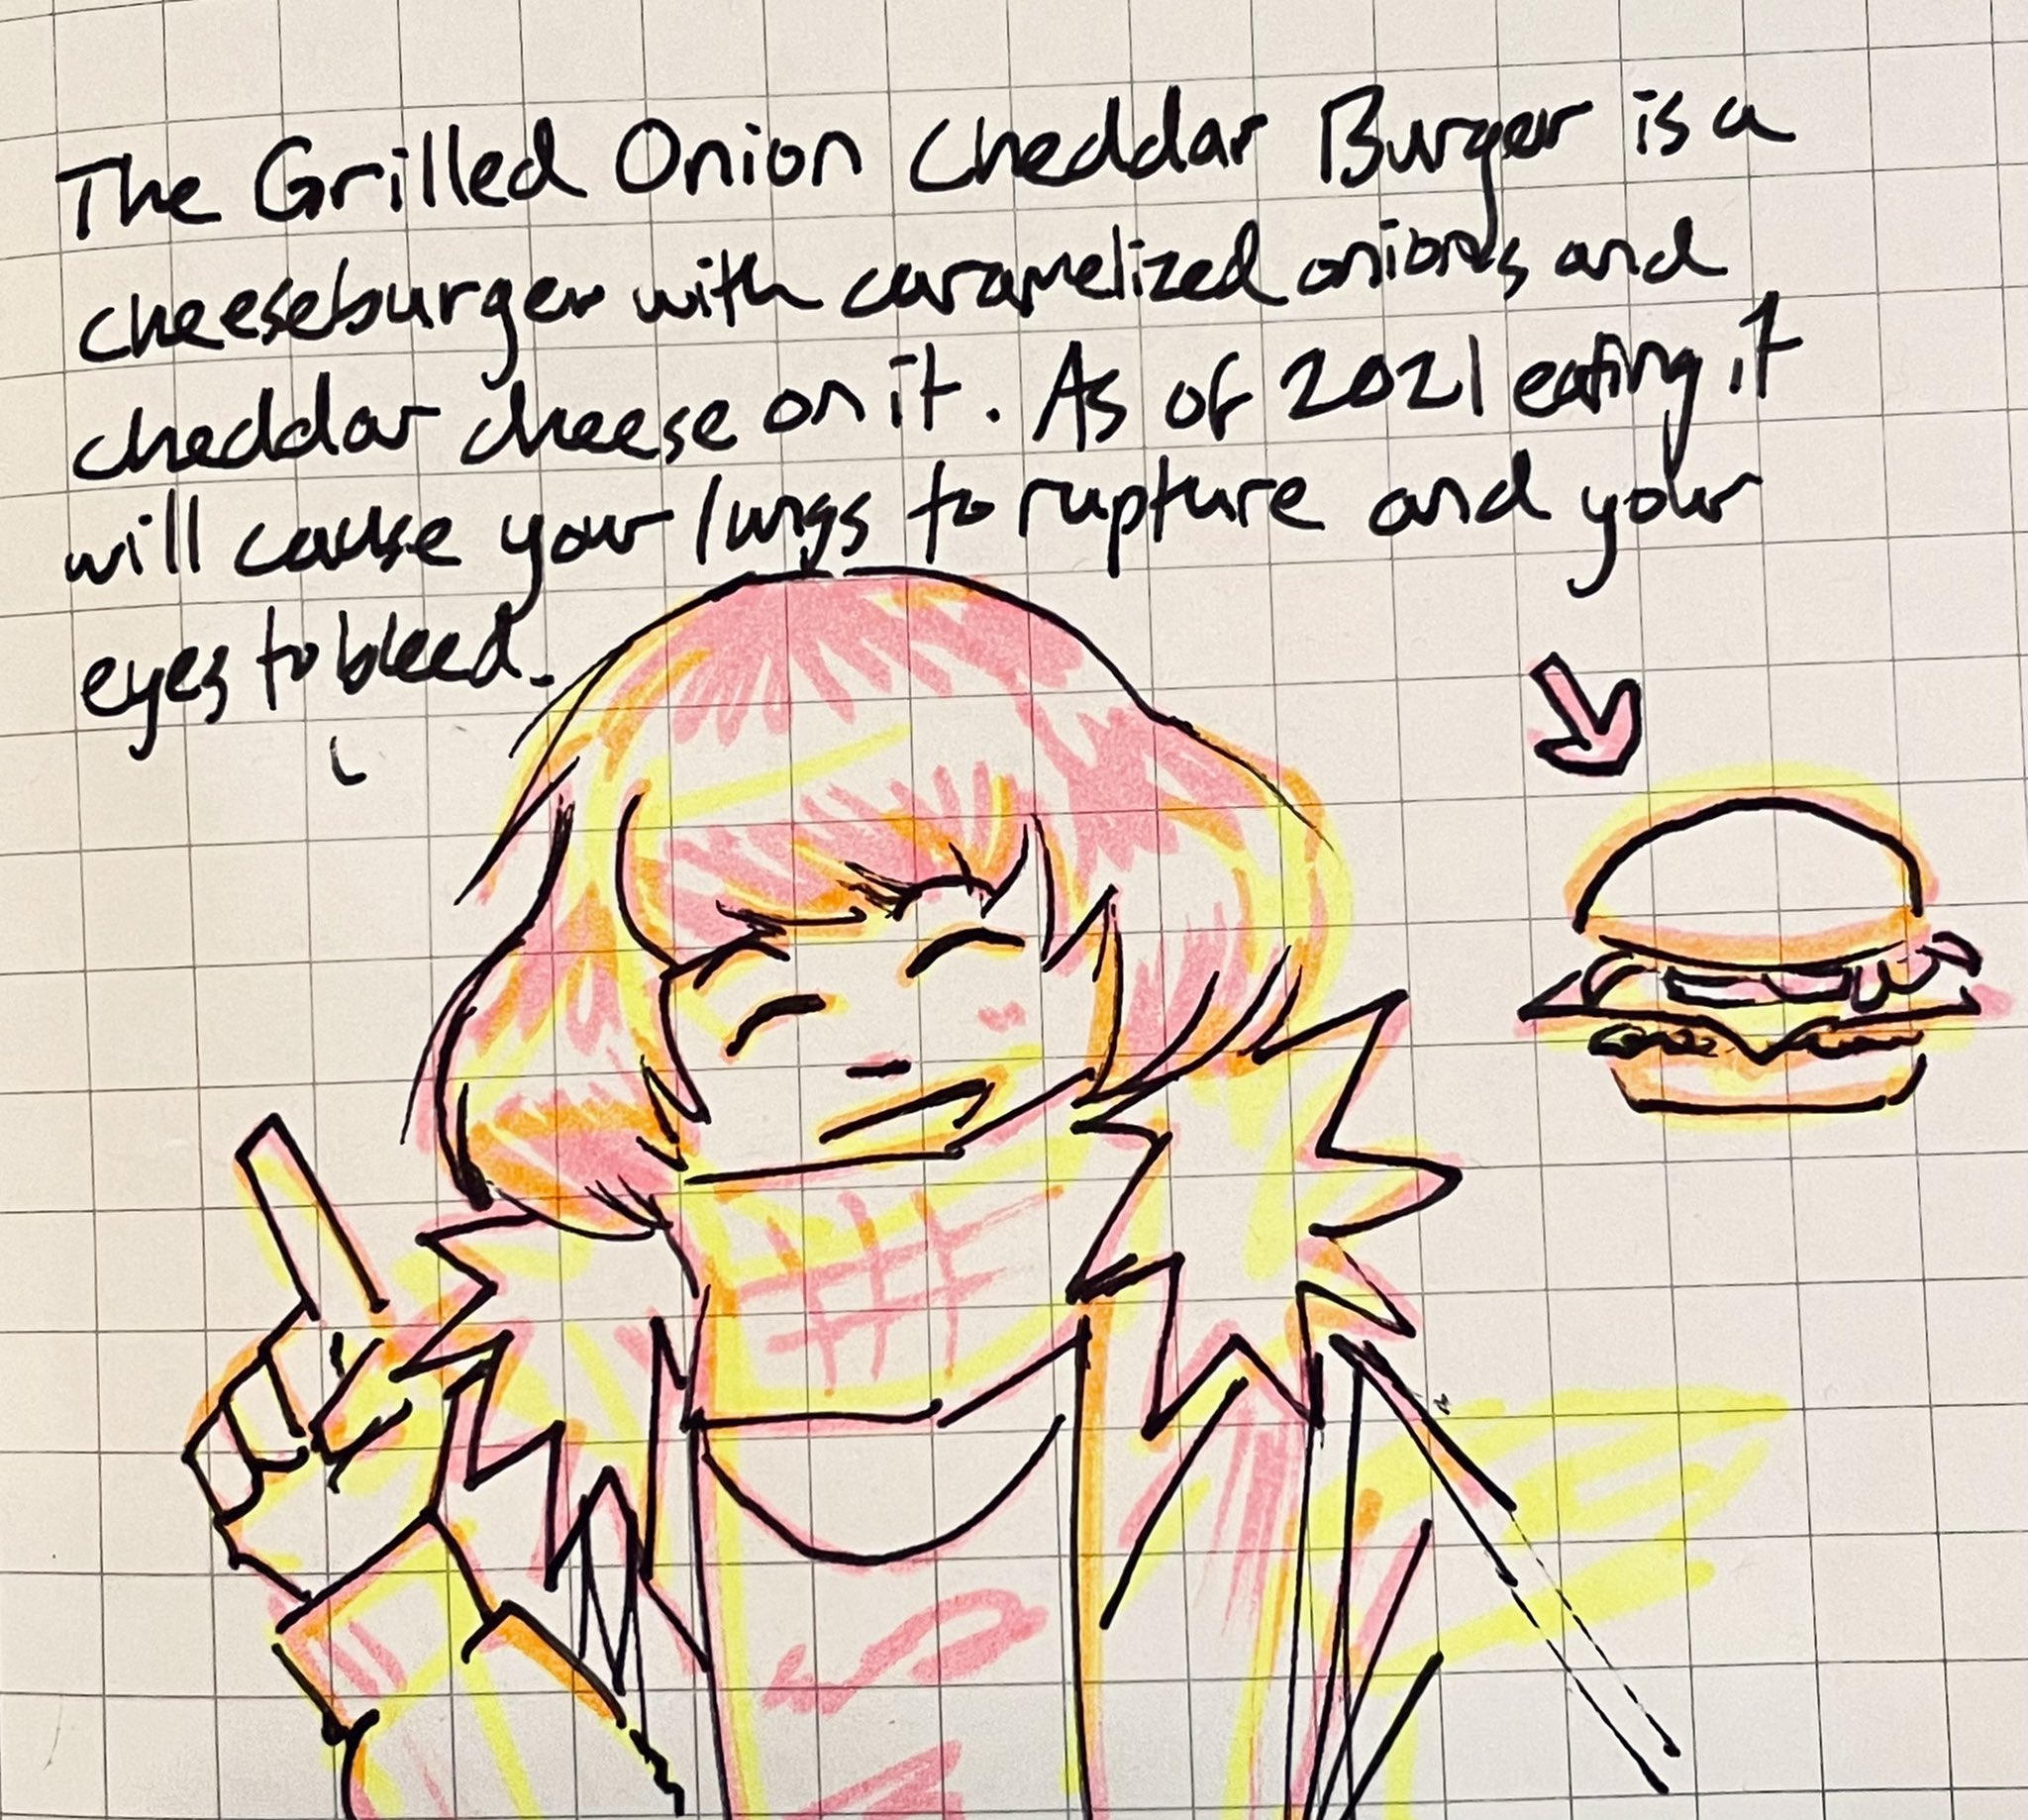 The Grilled Onion Cheddar Burger is a
cheeseburger with caramelized onions and
cheddar cheese on it. As of 2021 eating it
will cause your lungs to rupture and your
eyes to bleed.